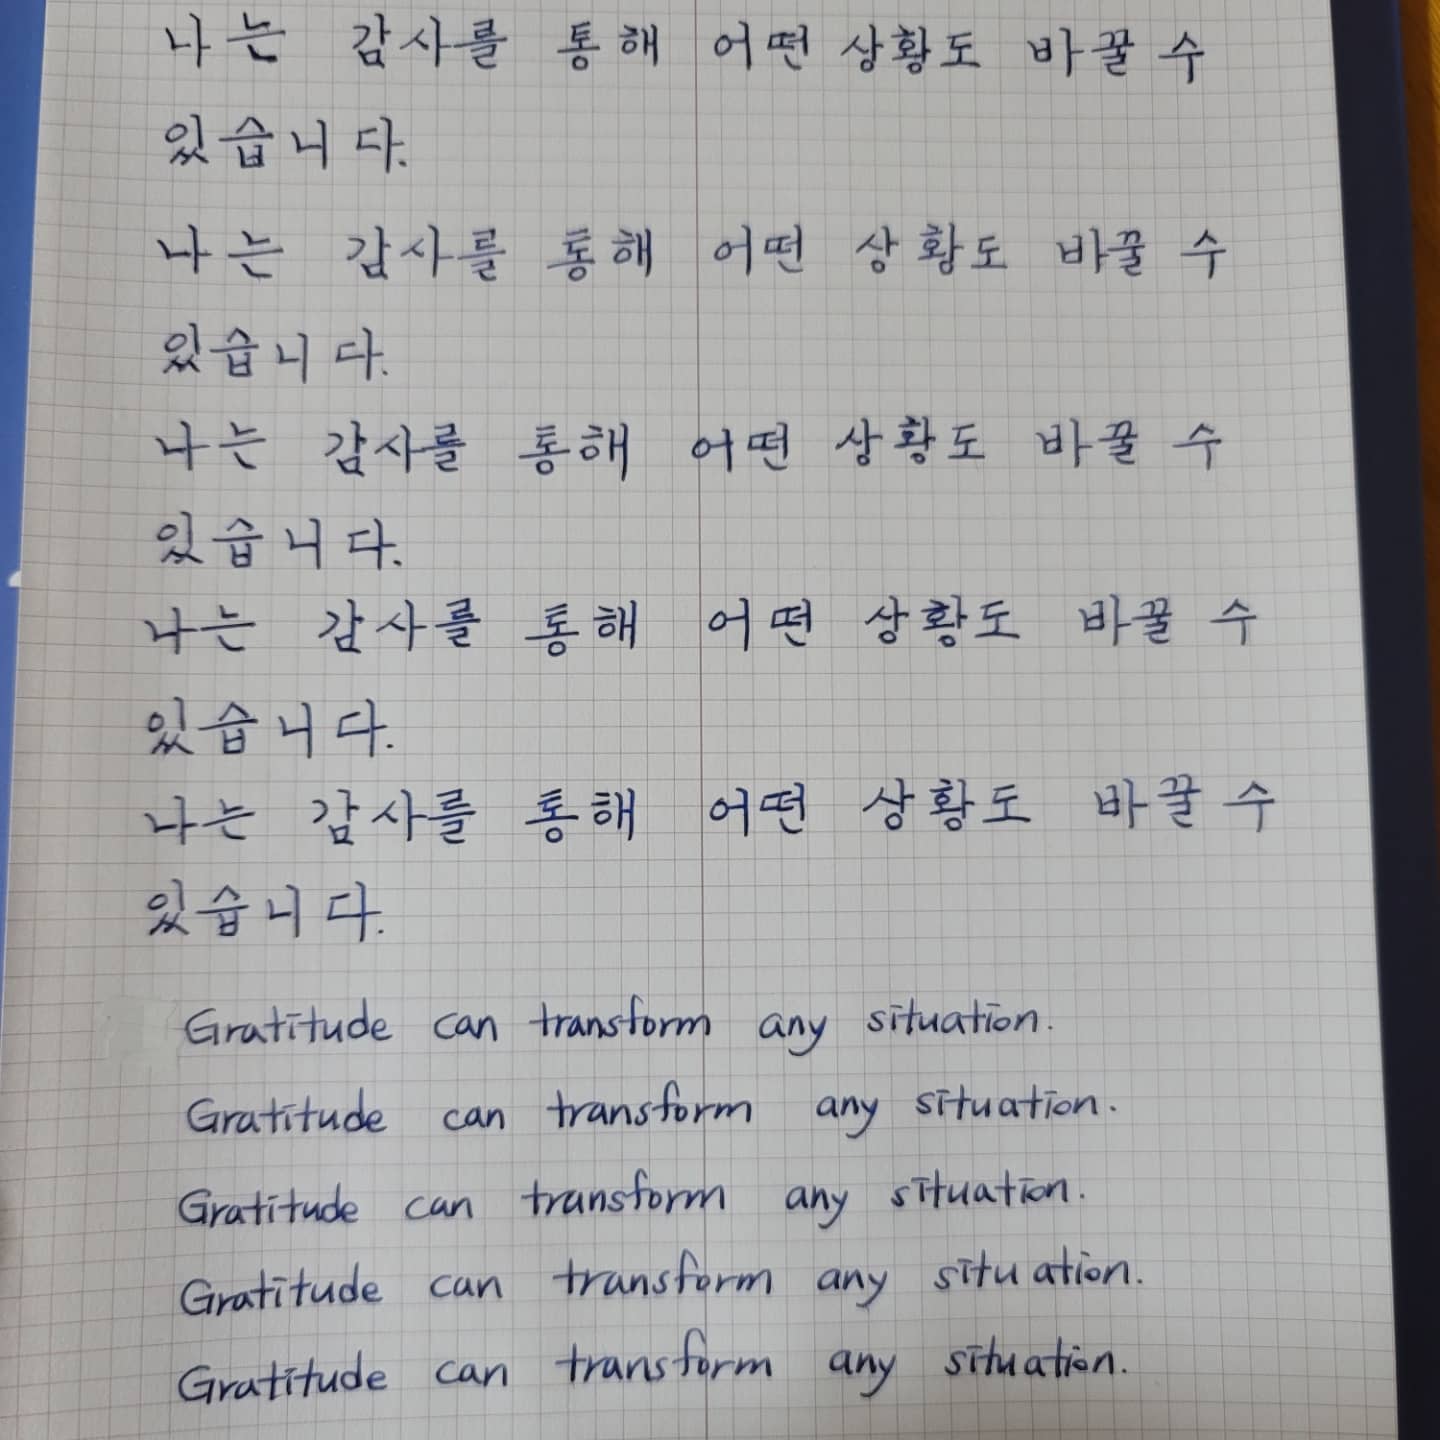 나는 감사를 통해 어떤 상황도 바꿀 수
있습니다.
나는 감사를 통해 어떤 상황도 바꿀 수
있습니다.
나는 감사를 통해 어떤 상황도 바꿀 수
있습니다.
나는 감사를 통해 어떤 상황도 바꿀 수
있습니다.
나는 감사를 통해 어떤 상황도 바꿀 수
있습니다.
Gratitude can transform any situation.
Gratitude can transform any situation.
Gratitude can transform any situation.
Gratitude can transform any situation.
Gratitude can transform any situation.